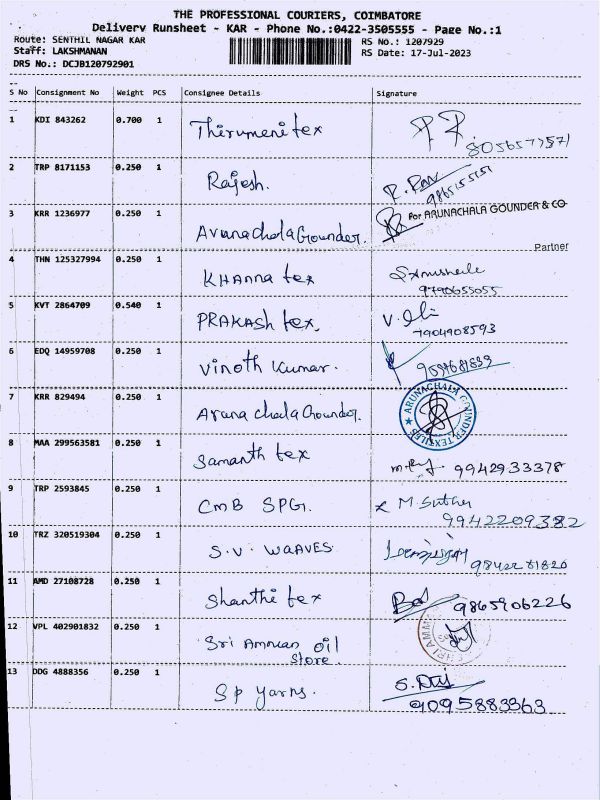 THE PROFESSIONAL COURIERS, COIMBATORE
Delivery Runsheet - KAR - Phone No.:0422-3505555 - Page No.:1
Route: SENTHIL NAGAR KAR RS No.: 1207929
Staff: LAKSHMANAN RS Date: 17-Jul-2023
DRS No.: DCJB120792901
S No Consignment No Weight PCS Consignee Details Signature
1 KDI 843262 0.700 1 Thirumeni tex
2 TRP 8171153 0.250 1 Rajesh.
9865155151
3 KRR 1236977 0.250 1 Arunachala Gounder.
For ARUNACHALA GOUNDER & CO
Partner
4 THN 125327994 0.250 1 KHanna tex
9790655055
5 KVT 2864709 0.540 1 PRAKASH tex.
7904908593
6 EDQ 14959708 0.250 1 Vinoth Kumar.
7 KRR 829494 0.250 1 Aruna chala Gounder.
ARUNACHALA GOUNDER TEXTILES
8 MAA 299563581 0.250 1 Samanth tex
9942933378
9 TRP 2593845 0.250 1 CMB SPG.
9942209382
10 TRZ 320519304 0.250 1 S.V. WAAVES
11 AMD 27108728 0.250 1 Shanthi tex 9865906226
12 VPL 402901832 0.250 1 Sri Amman oil
Store.
13 DDG 4888356 0.250 1 SP Yarns.
9095883363